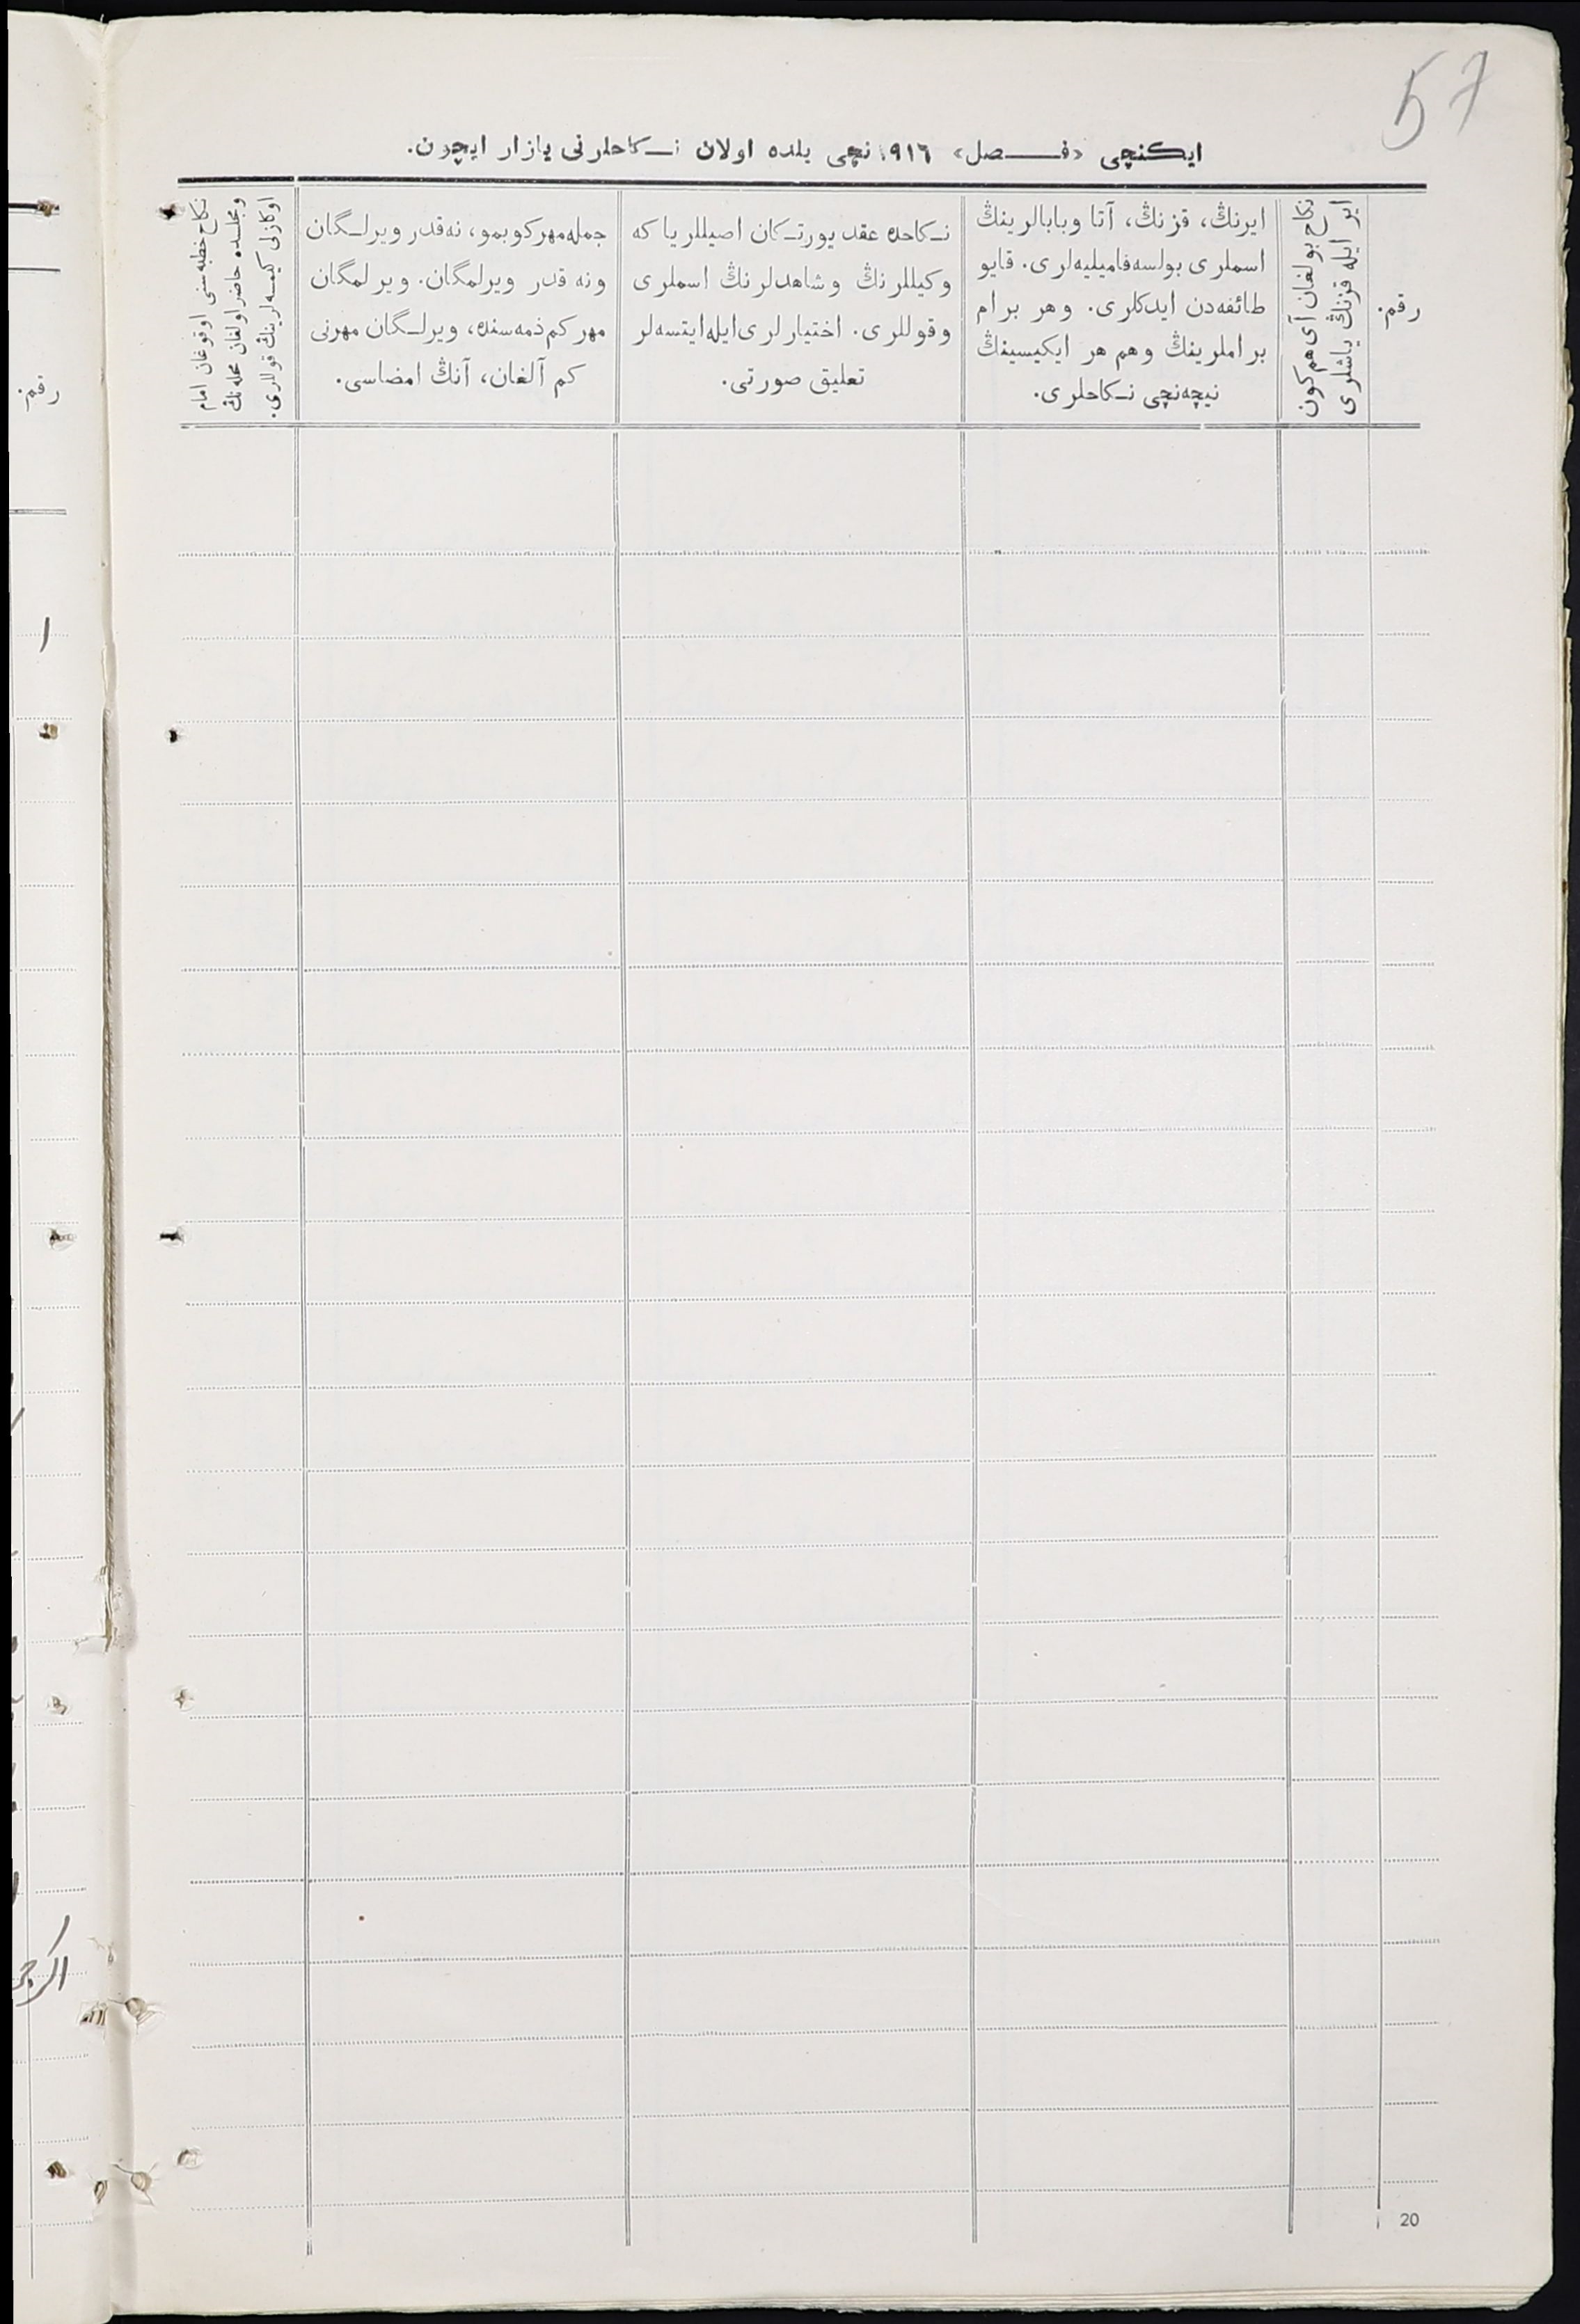 57
ایکنچی «فصل» ۱۹۱٦ نچی یلده اولان نکاحلرنی یازار ایچون.
رقم.
نکاح بولغان آی هم کون
ایر ایله قزنڭ یاشلری
ایرنڭ، قزنڭ، آتا وبابالرینڭ
اسملری بولسه فامیلیه‌لری. قایو
طائفه‌دن ایدکلری. وهر برام
براملرینڭ وهم هر ایکیسینڭ
نیچه‌نچی نکاحلری.
نکاحده عقد یورتکان اصیللر یا که
وکیللرنڭ وشاهدلرنڭ اسملری
وقوللری. اختیارلری ایله ایتسه‌لر
تعلیق صورتی.
جمله مهر کوبمو، نه‌قدر ویرلگان
ونه قدر ویرلمگان. ویرلمگان
مهر کم ذمه‌سنده، ویرلگان مهرنی
کم آلغان، آنڭ امضاسی.
نکاح خطبه سنی اوقوغان امام
ومجلسده حاضر اولغان محله نڭ
اوکازلی کیسه لرینڭ قوللری.
رقم.
۱
20